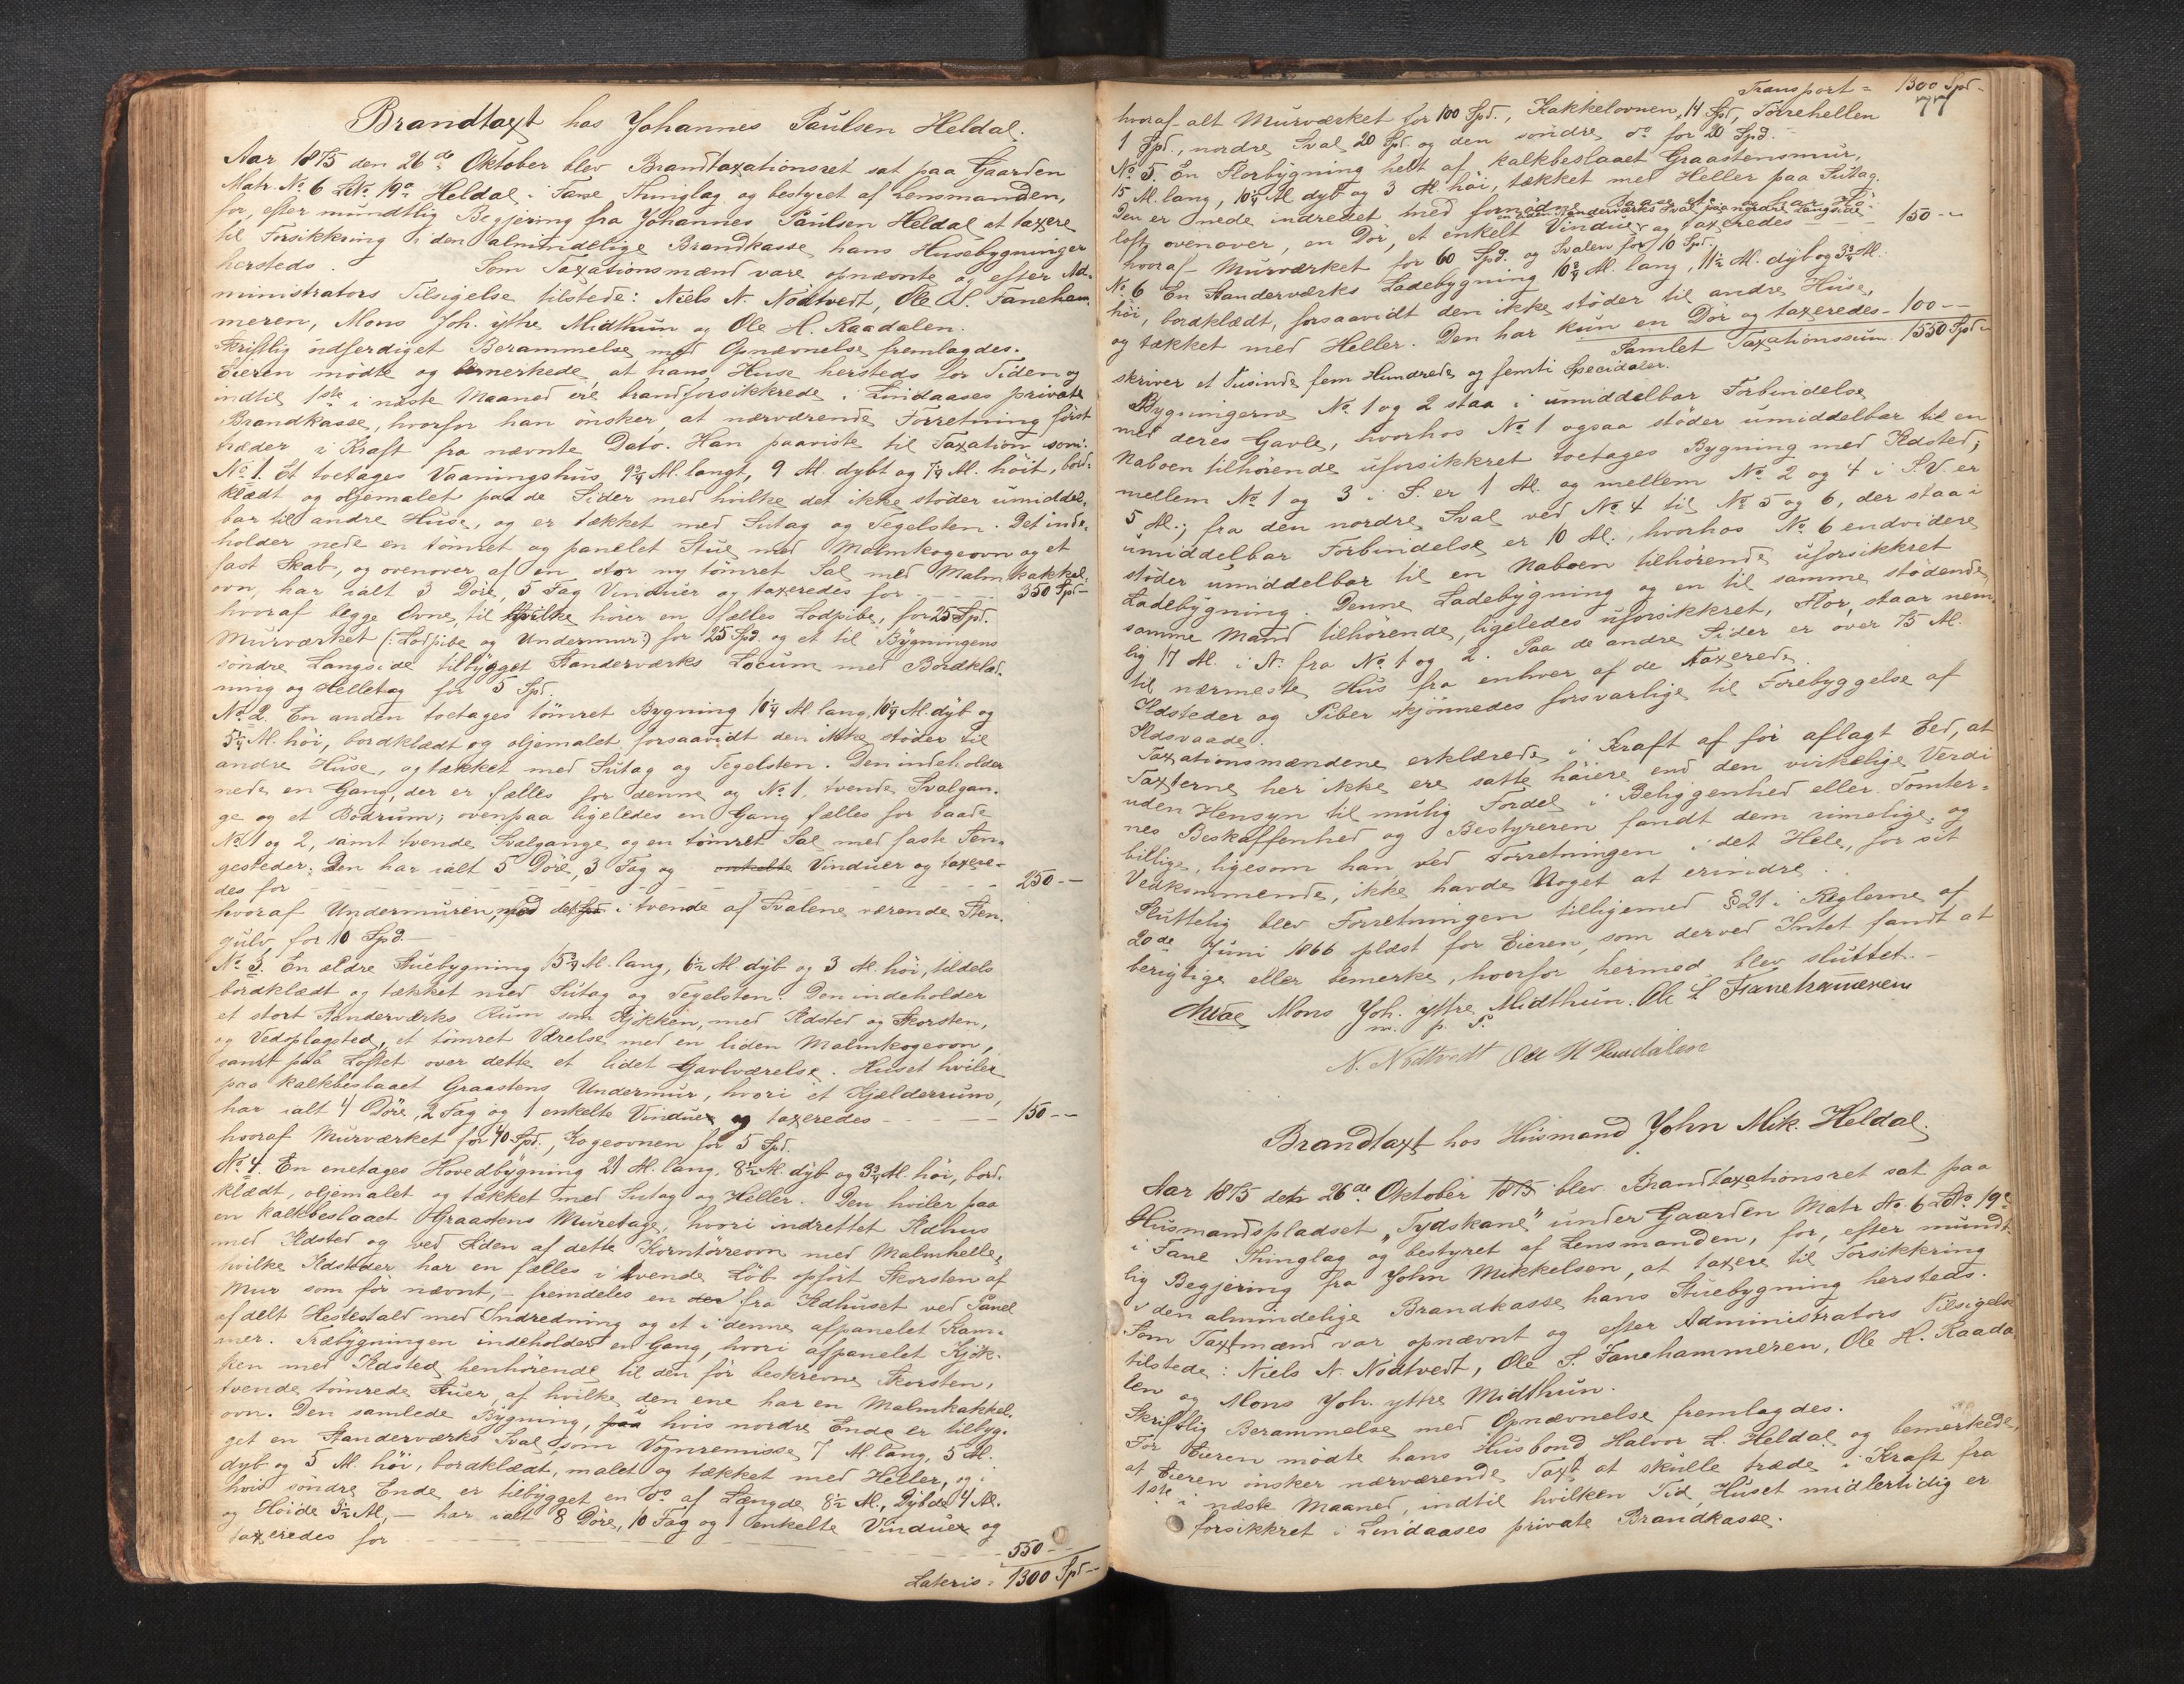 Brandtaxt hos Johannes Paulsen Heldal.
Aar 1875 den 26de Oktober blev Brandtaxationsret sat paa Gaarden
Matr. No 6 LNo 19a Heldal i Fane Thinglag og bestyret af Lensmanden,
for, efter mundtlig Begjering fra Johannes Paulsen Heldal at taxere
til Forsikkring i den almindelige Brandkasse hans Husebygninger
hersteds. Som Taxationsmænd vare opnævnte og efter Ad-
ministrators Tilsigelse tilstede: Niels N. Nödtvedt, Ole S. Faneham-
meren, Mons Joh. ytre Midthun og Ole H. Raadalen.
Skriftlig udferdiget Berammelse med Opnævnelse fremlagdes.
Eieren mödte og bemerkede at hans Huse hersteds for Tiden og
indtil 1ste i næste Maaned ere brandforsikkrede i Lindaases private
Brandkasse, hvorfor han önsker, at nærværende Forretning först
træder i Kraft fra nævnte Dato. Han paaviste til Taxation som:
No 1. Et toetages Vaaningshus 9 3/4 Al. langt, 9 Al. dybt og 7 1/4 Al. höit, bord-
klædt og oljemalet paa de Sider med hvilke det ikke stöder umiddel-
bar til andre Huse, og er tækket med Sutag og Tegelsten. Det inde-
holder nede en tömret og panelet Stue med Malmkogeovn og et
fast Skab, og ovenover af en stor ny tömret Sal med Malmkakkel-
ovn, har ialt 3 Döre, 5 Fag Vinduer og taxeredes for - - - 350 Spd -
hvoraf begge Ovne, til hvilke hörer en fælles Lodpibe, for 25 Spd.
Murværket (: Lodpibe og Undermur :) for 25 Spd. og et til Bygningens
söndre Langside tilbygget Standerværks Locum med Bordklæd-
ning og Helletag for 5 Spd.
No 2. En anden toetages tömret Bygning 10 1/4 Al. lang, 10 1/4 Al. dyb og
5 1/4 Al. höi, bordklædt og oljemalet forsaavidt den ikke stöder til
andre Huse, og tækket med Sutag og Tegelsten. Den indeholder
nede en Gang, der er fælles for denne og No 1, tvende Svalgan-
ge og et Bodrum; ovenpaa ligeledes en Gang fælles for baade
No 1 og 2, samt tvende Svalgange og en tömret Sal med faste Sen-
gesteder; Den har ialt 5 Döre, 3 Fag og enkelte Vinduer og taxere-
des for - - - 250 - -
hvoraf Undermuren med det i tvende af Svalene værende Sten-
gulv for 10 Spd. -
No 3. En ældre Stuebygning 15 3/4 Al. lang, 6 1/2 Al dyb og 3 Al. höi, tildels
bordklædt og tækket med Sutag og Tegelsten. Den indeholder
et stort Standerværks Rum som Kjökken, med Ildsted og Skorsten,
og Vedoplagsted, et tömret Værelse med en liden Malmkogeovn,
samt paa Loftet over dette et lidet Gavlværelse. Huset hviler
paa kalkbeslaaet Graastens Undermur, hvori et Kjælderrum,
har ialt 4 Döre, 2 Fag og 1 enkelte Vinduer og taxeredes - - - 150 - -
hvoraf Murværket for 40 Spd., Kogeovnen for 5 Spd.
No 4. En enetages Hovedbygning 21 Al. lang, 8 1/2 Al. dyb og 3 3/4 Al. höi, bord-
klædt, oljemalet og tækket med Sutag og Heller. Den hviler paa
en kalkbeslaaet Graastens Muretage, hvori indrettet Ildhus
med Ildsted og ved Siden af dette Korntörreovn med Malmhelle,
hvilke Ildsteder har en fælles i tvende Löb opfört Skorsten af
Mur som för nævnt, - fremdeles en der fra Ildhuset ved Panel
afdelt Hestestald med Indredning og et i denne afpanelet Kam-
mer. Træbygningen indeholder en Gang, hvori afpanelet Kjök-
ken med Ildsted henhörende til den för beskrevne Skorsten,
tvende tömrede Stuer, af hvilke den ene har en Malmkakkel-
ovn. Den samlede Bygning, paa hvis nordre Ende er tilbyg-
get en Standerværks Sval som Vognremisse 7 Al. lang, 5 Al.
dyb og 5 Al. höi, bordklædt, malet og tækket med Heller, og i
hvis söndre Ende er tilbygget en do af Længde 8 1/2 Al., Dybde 4 Al.
og Höide 3 1/2 Al, - har ialt 8 Döre, 10 Fag og 1 enkelte Vinduer og
taxeredes for - - - 550 - -
Lateris = 1300 Spd -
Transport = 1300 Spd -
77
hvoraf alt Murværket for 100 Spd., Kakkelovnen 14 Spd, Törrehellen
1 Spd., nordre Sval 20 Spd. og den söndre do for 20 Spd.
No 5. En Florbygning helt af kalkbeslaaet Graastensmur,
15 Al. lang, 10 1/4 Al dyb og 3 Al. höi, tækket med Heller paa Sutag.
Den er nede indredet med fornödne Baase etc. og har Hö-
loft ovenover, en Dör, et enkelt Vindue, og taxeredes - - 150 - -
samt en Standerværks Sval paa nordre Langside
hvoraf Murværket for 60 Spd. og Svalen for 10 Spd.
No 6 En Standerværks Ladebygning 10 3/4 Al. lang, 11 1/2 Al. dyb og 3 3/4 Al.
höi, bordklædt, forsaavidt den ikke stöder til andre Huse,
og tækket med Heller. Den har kun en Dör og taxeredes - 100 - -
Samlet Taxationssum 1550 Spd -
skriver et Tusinde fem Hundrede og femti Specidaler.
Bygningerne No 1 og 2 staa i umiddelbar Forbindelse
med deres Gavle, hvorhos No 1 ogsaa stöder umiddelbar til en
Naboen tilhörende uforsikkret toetages Bygning med Ildsted;
mellem No 1 og 3 i S. er 1 Al. og mellem No 2 og 4 i S.V. er
5 Al.; fra den nordre Sval ved No 4 til No 5 og 6, der staa i
umiddelbar Forbindelse er 10 Al., hvorhos No 6 endvidere
stöder umiddelbar til en Naboen tilhörende uforsikkret
Ladebygning. Denne Ladebygning og en til samme stödende,
samme Mand tilhörende, ligeledes uforsikkret, Flor, staar nem-
lig 17 Al. i N. fra No 1 og 2. Paa de andre Sider er over 75 Al.
til nærmeste Hus fra enhver af de taxerede.
Ildsteder og Piber skjönnedes forsvarlige til Forebyggelse af
Ildsvaade.
Taxationsmændene erklærede i Kraft af för aflagt Eed, at
Taxterne her ikke ere satte höiere end den virkelige Verdi
uden Hensyn til mulig Fordel i Beliggenhed eller Tomter-
nes Beskaffenhed og Bestyreren fandt dem rimelige og
billige, ligesom han ved Forretningen i det Hele, for sit
Vedkommende, ikke havde Noget at erindre.
Sluttelig blev Forretningen tilligemed § 21 i Reglerne af
20de Juni 1866 oplæst for Eieren, som derved Intet fandt at
berigtige eller bemerke, hvorfor hermed blev sluttet. -
Mons Joh. ytre Midthun. Ole S. Fanehammeren
m. p. P.
N. Nödtvedt Ole H Raadalen
Brandtaxt hos Husmand John Mik. Heldal.
Aar 1875 den 26de Oktober 1875 blev Brandtaxationsret sat paa
Husmandspladset "Tydskane" under Gaarden Matr No 6 LNo 19c
i Fane Thinglag og bestyret af Lensmanden, for, efter mundt-
lig Begjering fra John Mikkelsen, at taxere til Forsikkring
i den almindelige Brandkasse hans Stuebygning hersteds.
Som Taxtmænd var opnævnt og efter Administrators Tilsigelse
tilstede: Niels N. Nödtvedt, Ole S. Fanehammeren, Ole H. Raada-
len og Mons Joh. ytre Midthun.
Skriftlig Berammelse med Opnævnelse fremlagdes.
For Eieren mödte hans Husbond Halvor L. Heldal og bemerkede,
at Eieren önsker nærværende Taxt at skulle træde i Kraft fra
1ste i næste Maaned, indtil hvilken Tid Huset midlertidig er
forsikkret i Lindaases private Brandkasse.